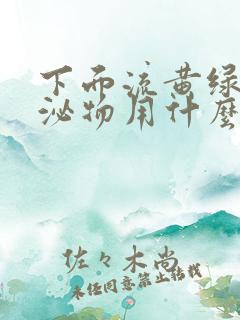 下而流黄绿
泌物用什麼
佐々木尚
未経同意禁止转载